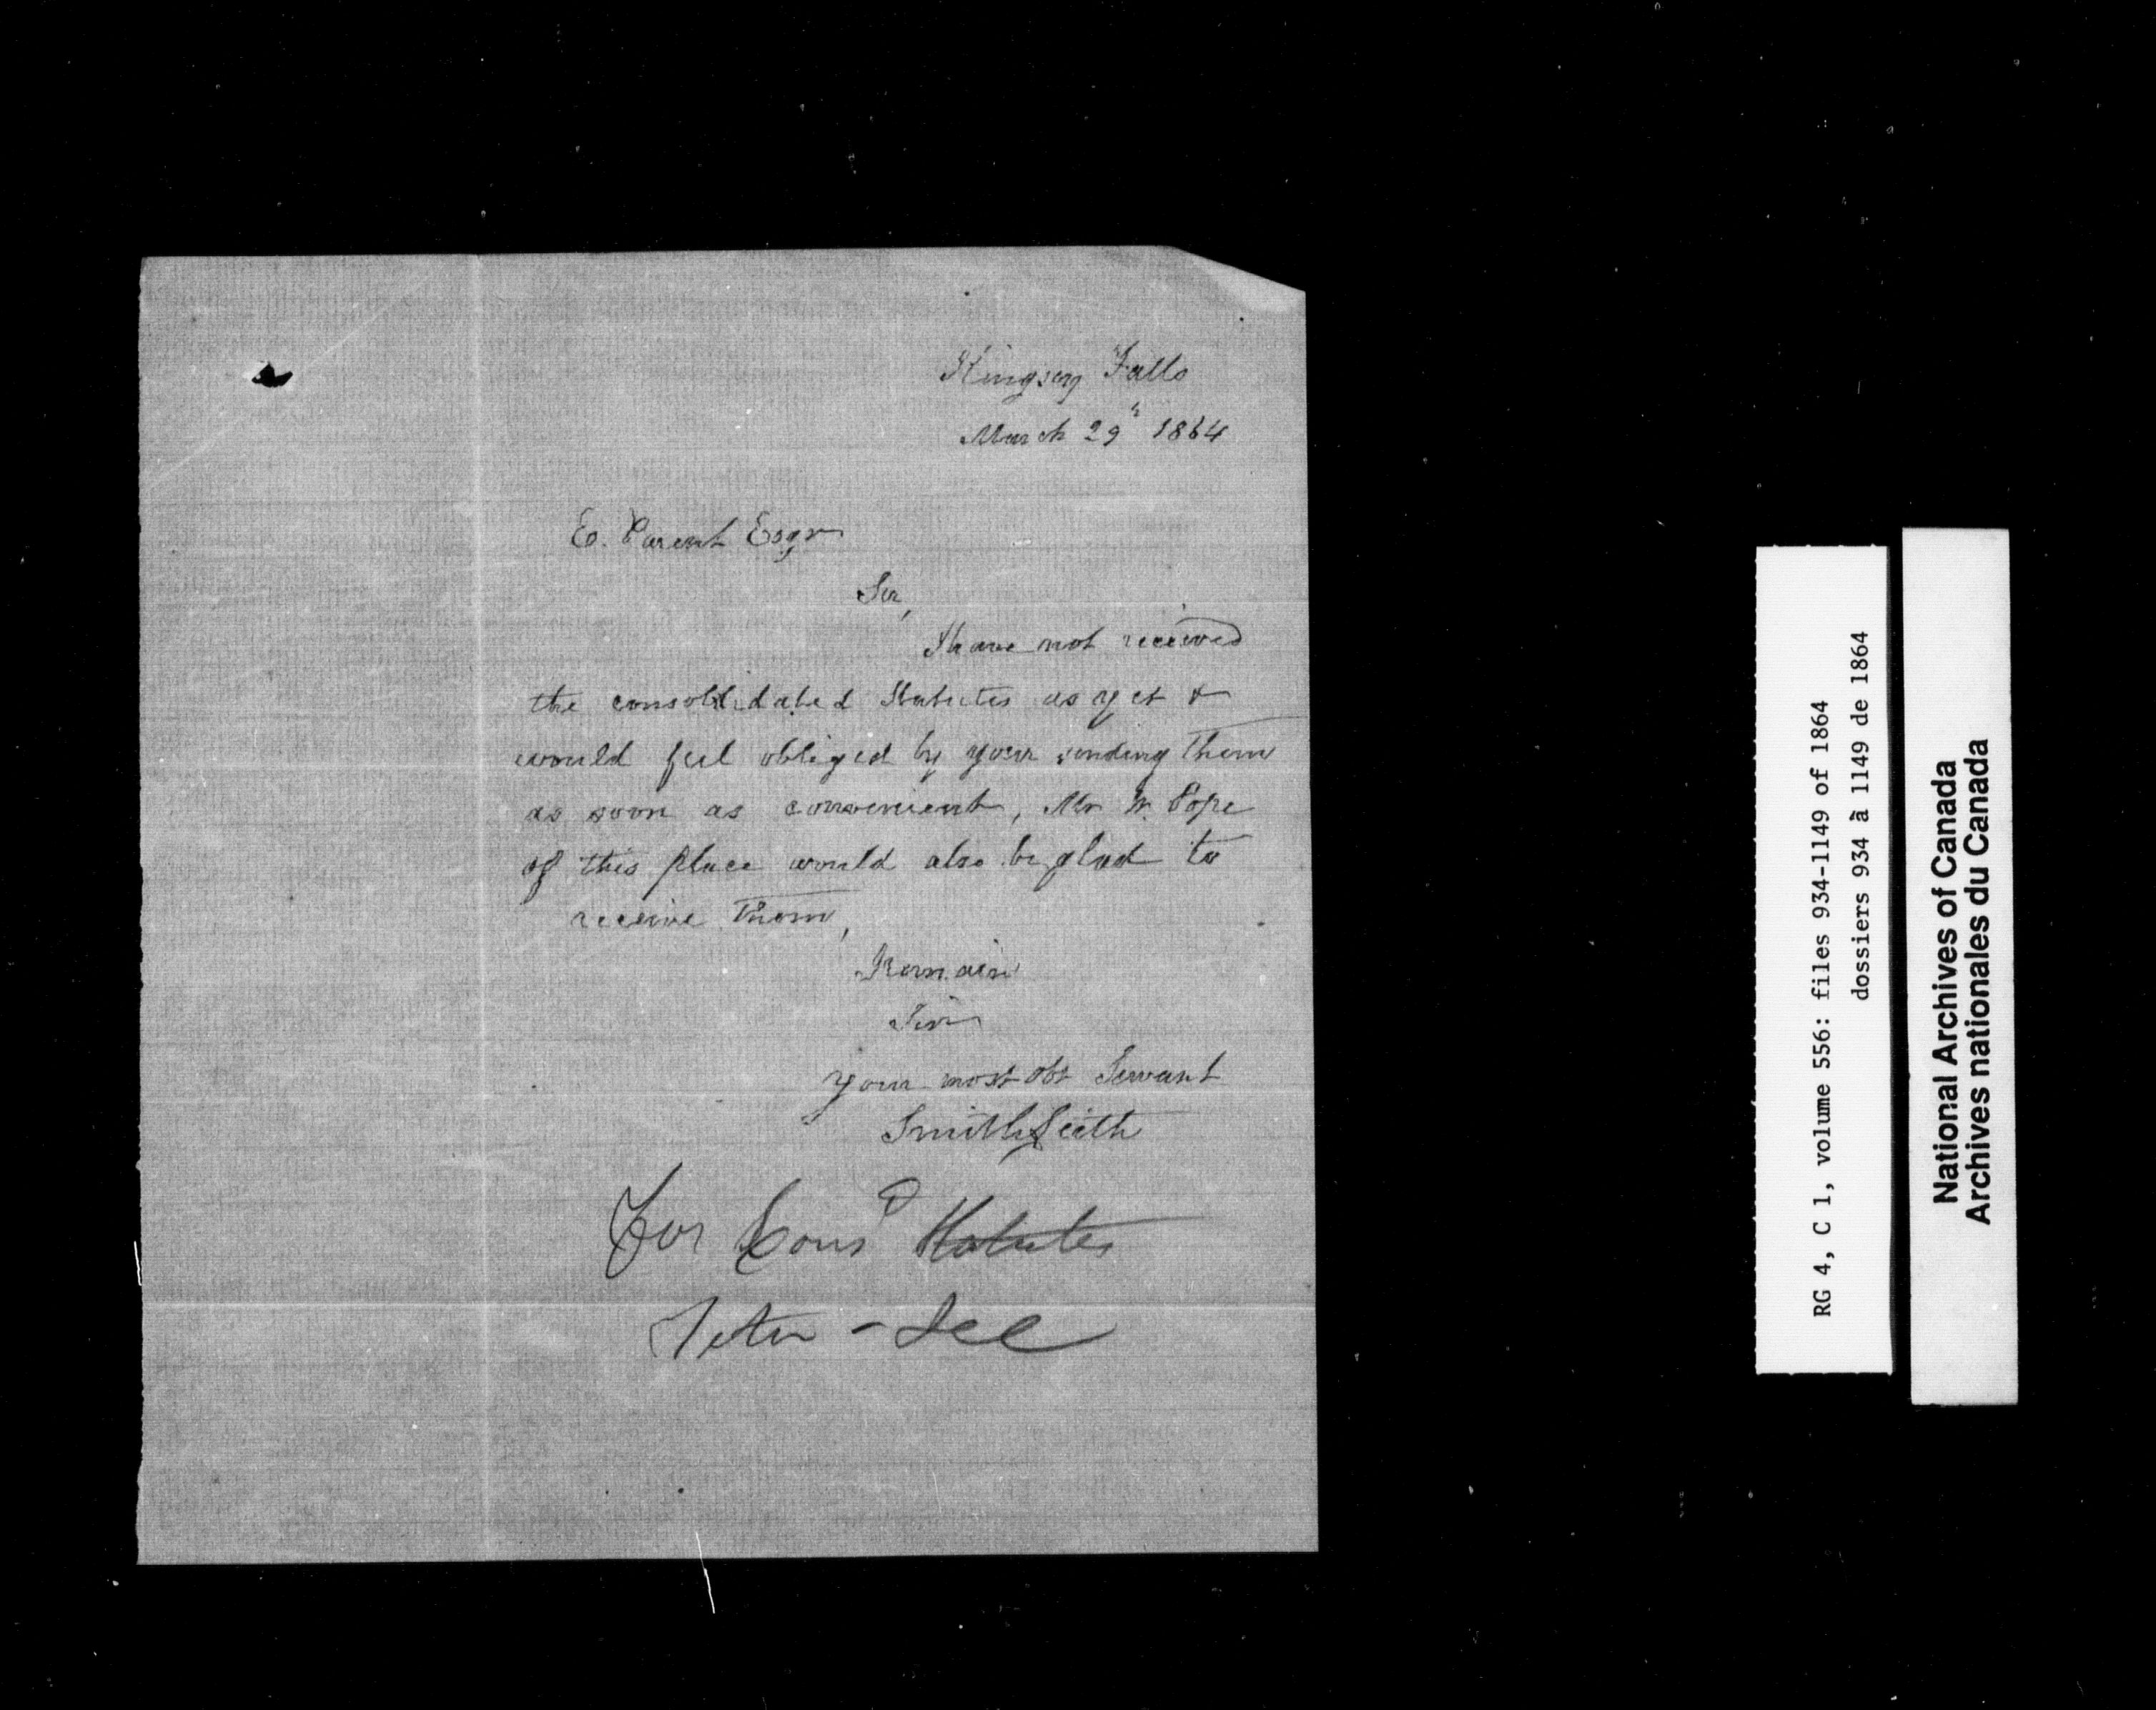 Kingsey Falls
March 29th 1864
E. Parent Esqr
Sir,
I have not received
the consolidated Statutes as yet &
would feel obliged by your sending them
as soon as convenient, Mr W. Pope
of this place would also be glad to
receive them,
I remain
Sir
your most obt Servant
Smith Leith
For Consd Statutes
RG 4, C 1, volume 556: files 934-1149 of 1864
dossiers 934 à 1149 de 1864
National Archives of Canada
Archives nationales du Canada